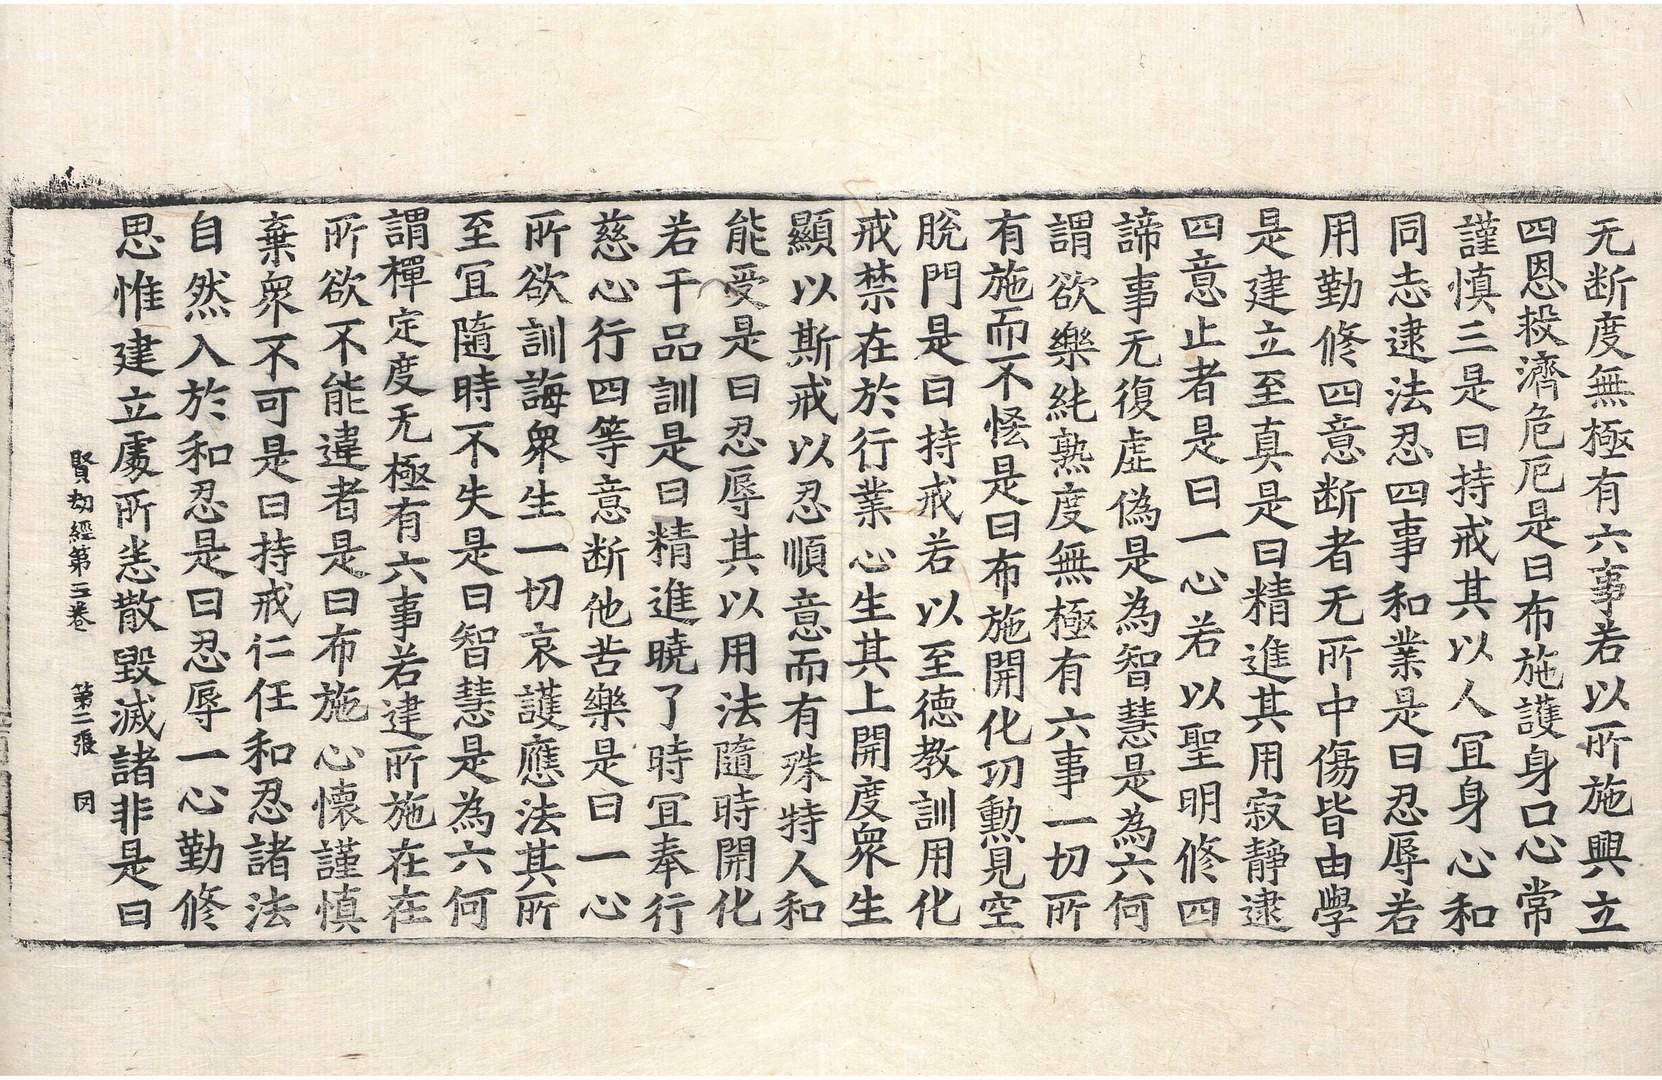 无断度無極有六事若以所施興立
四恩投濟危厄是曰布施護身口心常
謹慎三是曰持戒其以人宜身心和
同志逮法忍四事和業是曰忍辱若
用勤修四意断者无所中傷皆由學
是建立至真是曰精進其用寂靜逮
四意止者是曰一心若以聖明修四
諦事无復虛偽是為智慧是為六何
謂欲樂純熟度無極有六事一切所
有施而不悋是曰布施開化功勳見空
脫門是曰持戒若以至德教訓用化
戒禁在於行業心生其上開度衆生
顯以斯戒以忍順意而有殊特人和
能受是曰忍辱其以用法隨時開化
若干品訓是曰精進曉了時宜奉行
慈心行四等意断他苦樂是曰一心
所欲訓誨衆生一切哀護應法其所
至宜隨時不失是曰智慧是為六何
謂禪定度无極有六事若建所施在在
所欲不能違者是曰布施心懷謹慎
棄衆不可是曰持戒仁任和忍諸法
自然入於和忍是曰忍辱一心勤修
思惟建立處所恙散毀滅諸非是曰
賢劫經第三卷 第二張 罔